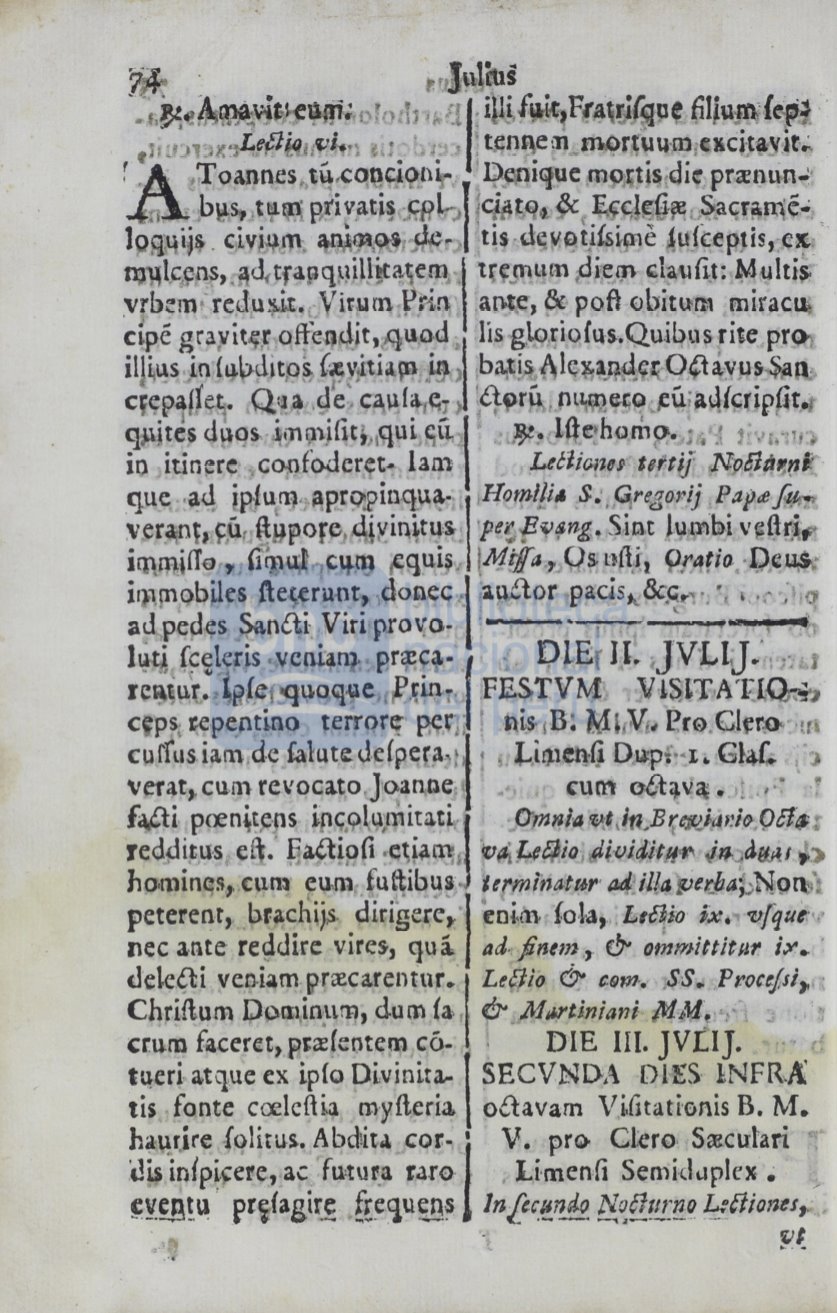 74
Julius
℟. Amavit eum.
Lectio vi.
AToannes tū concioni-
bus, tum privatis col-
loquijs civium animos de-
mulcens, ad tranquillitatem
vrbem reduxit. Virum Prin
cipē graviter offendit, quod
illius in subditos sævitiam in
crepasset. Qua de causa e-
quites duos immisit, qui eū
in itinere confoderet. Iam
que ad ipsum apropinqua-
verant, cū stupore divinitus
immisso, simul cum equis
immobiles steterunt, donec
ad pedes Sancti Viri provo-
luti scęleris veniam præca-
rentur. Ipse quoque Prin-
ceps repentino terrore per
cussus iam de salute despera-
verat, cum revocato Joanne
facti pœnitens incolumitati
redditus est. Factiosi etiam
homines, cum eum fustibus
peterent, brachijs dirigere,
nec ante reddire vires, quā
delecti veniam præcarentur.
Christum Dominum, dum sa
crum faceret, præsentem cō-
tueri atque ex ipso Divinita-
tis fonte cœlestia mysteria
haurire solitus. Abdita cor-
dis inspicere, ac futura raro
eventu pręsagire frequens
illi fuit, Fratrisque filium sep-
tennem mortuum excitavit.
Denique mortis die prænun-
ciato, & Ecclesiæ Sacramē-
tis devotissimè susceptis, ex
tremum diem clausit: Multis
ante, & post obitum miracu
lis gloriosus. Quibus rite pro
batis Alexander Octavus San
ctorū numero eū adscripsit.
℟. Iste homo.
Lectiones tertij Nocturni
Homilia S. Gregorij Papæ su-
per Evang. Sint lumbi vestri,
Missa, Os usti, Oratio Deus
auctor pacis, &c.
DIE II. JVLIJ.
FESTVM VISITATIO-
nis B. M. V. Pro Clero
Limensi Dup. 1. Clas.
cum octava.
Omnia vt in Breviario Octa
va Lectio dividitur in duas,
terminatur ad illa verba; Non
enim sola, Lectio ix. vsque
ad finem, & ommittitur ix.
Lectio & com. SS. Processi,
& Martiniani MM.
DIE III. JVLIJ.
SECVNDA DIES INFRA
octavam Visitationis B. M.
V. pro Clero Sæculari
Limensi Semiduplex.
In secundo Nocturno Lectiones,
vt